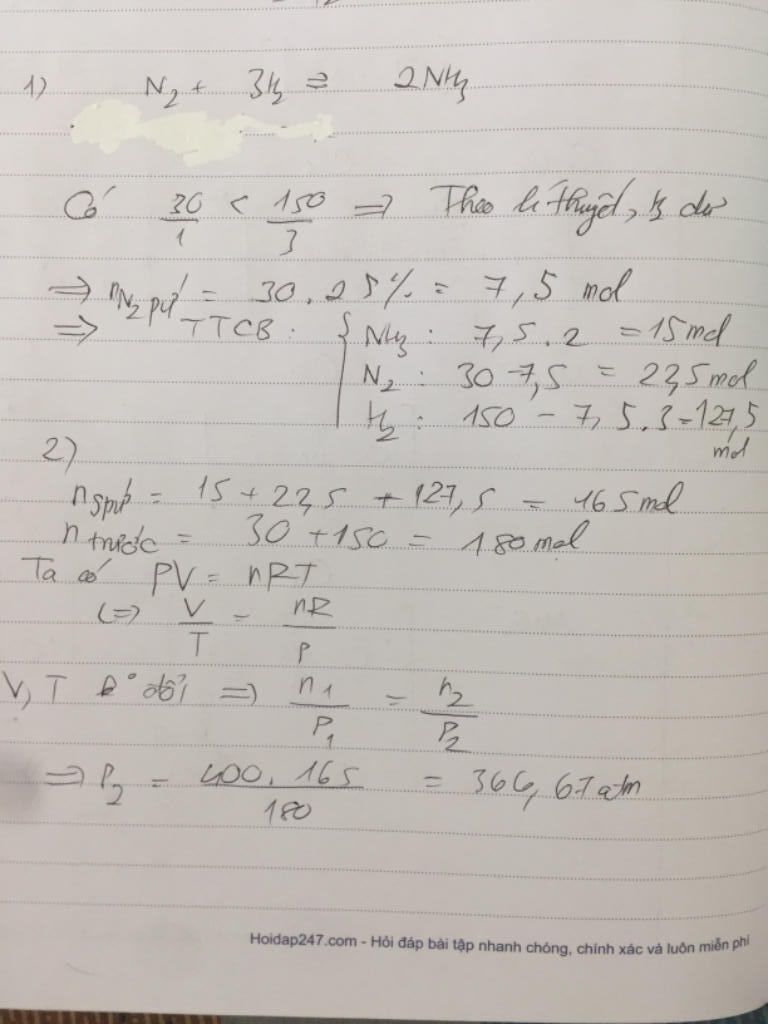 1) N₂ + 3H₂ ⇌ 2NH₃
Có 30/1 < 150/3 ⇒ Theo lí thuyết, H₂ dư
⇒ nN₂ pứ = 30.25% = 7,5 mol
⇒ TTCB: { NH₃: 7,5.2 = 15 mol
N₂: 30-7,5 = 22,5 mol
H₂: 150 - 7,5.3 = 127,5 mol
2)
n spứ = 15 + 22,5 + 127,5 = 165 mol
n trước = 30 + 150 = 180 mol
Ta có PV = nRT
(=) V/T = nR/P
V, T k° đổi ⇒ n₁/P₁ = n₂/P₂
⇒ P₂ = 400.165/180 = 366,67 atm
Hoidap247.com - Hỏi đáp bài tập nhanh chóng, chính xác và luôn miễn phí